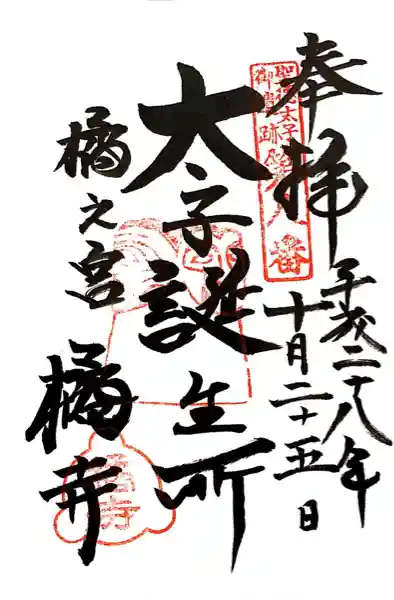 奉拝
聖徳太子
御遺跡第八番
平成二十八年
十月二十五日
太子誕生所
橘之宮
橘寺
橘寺